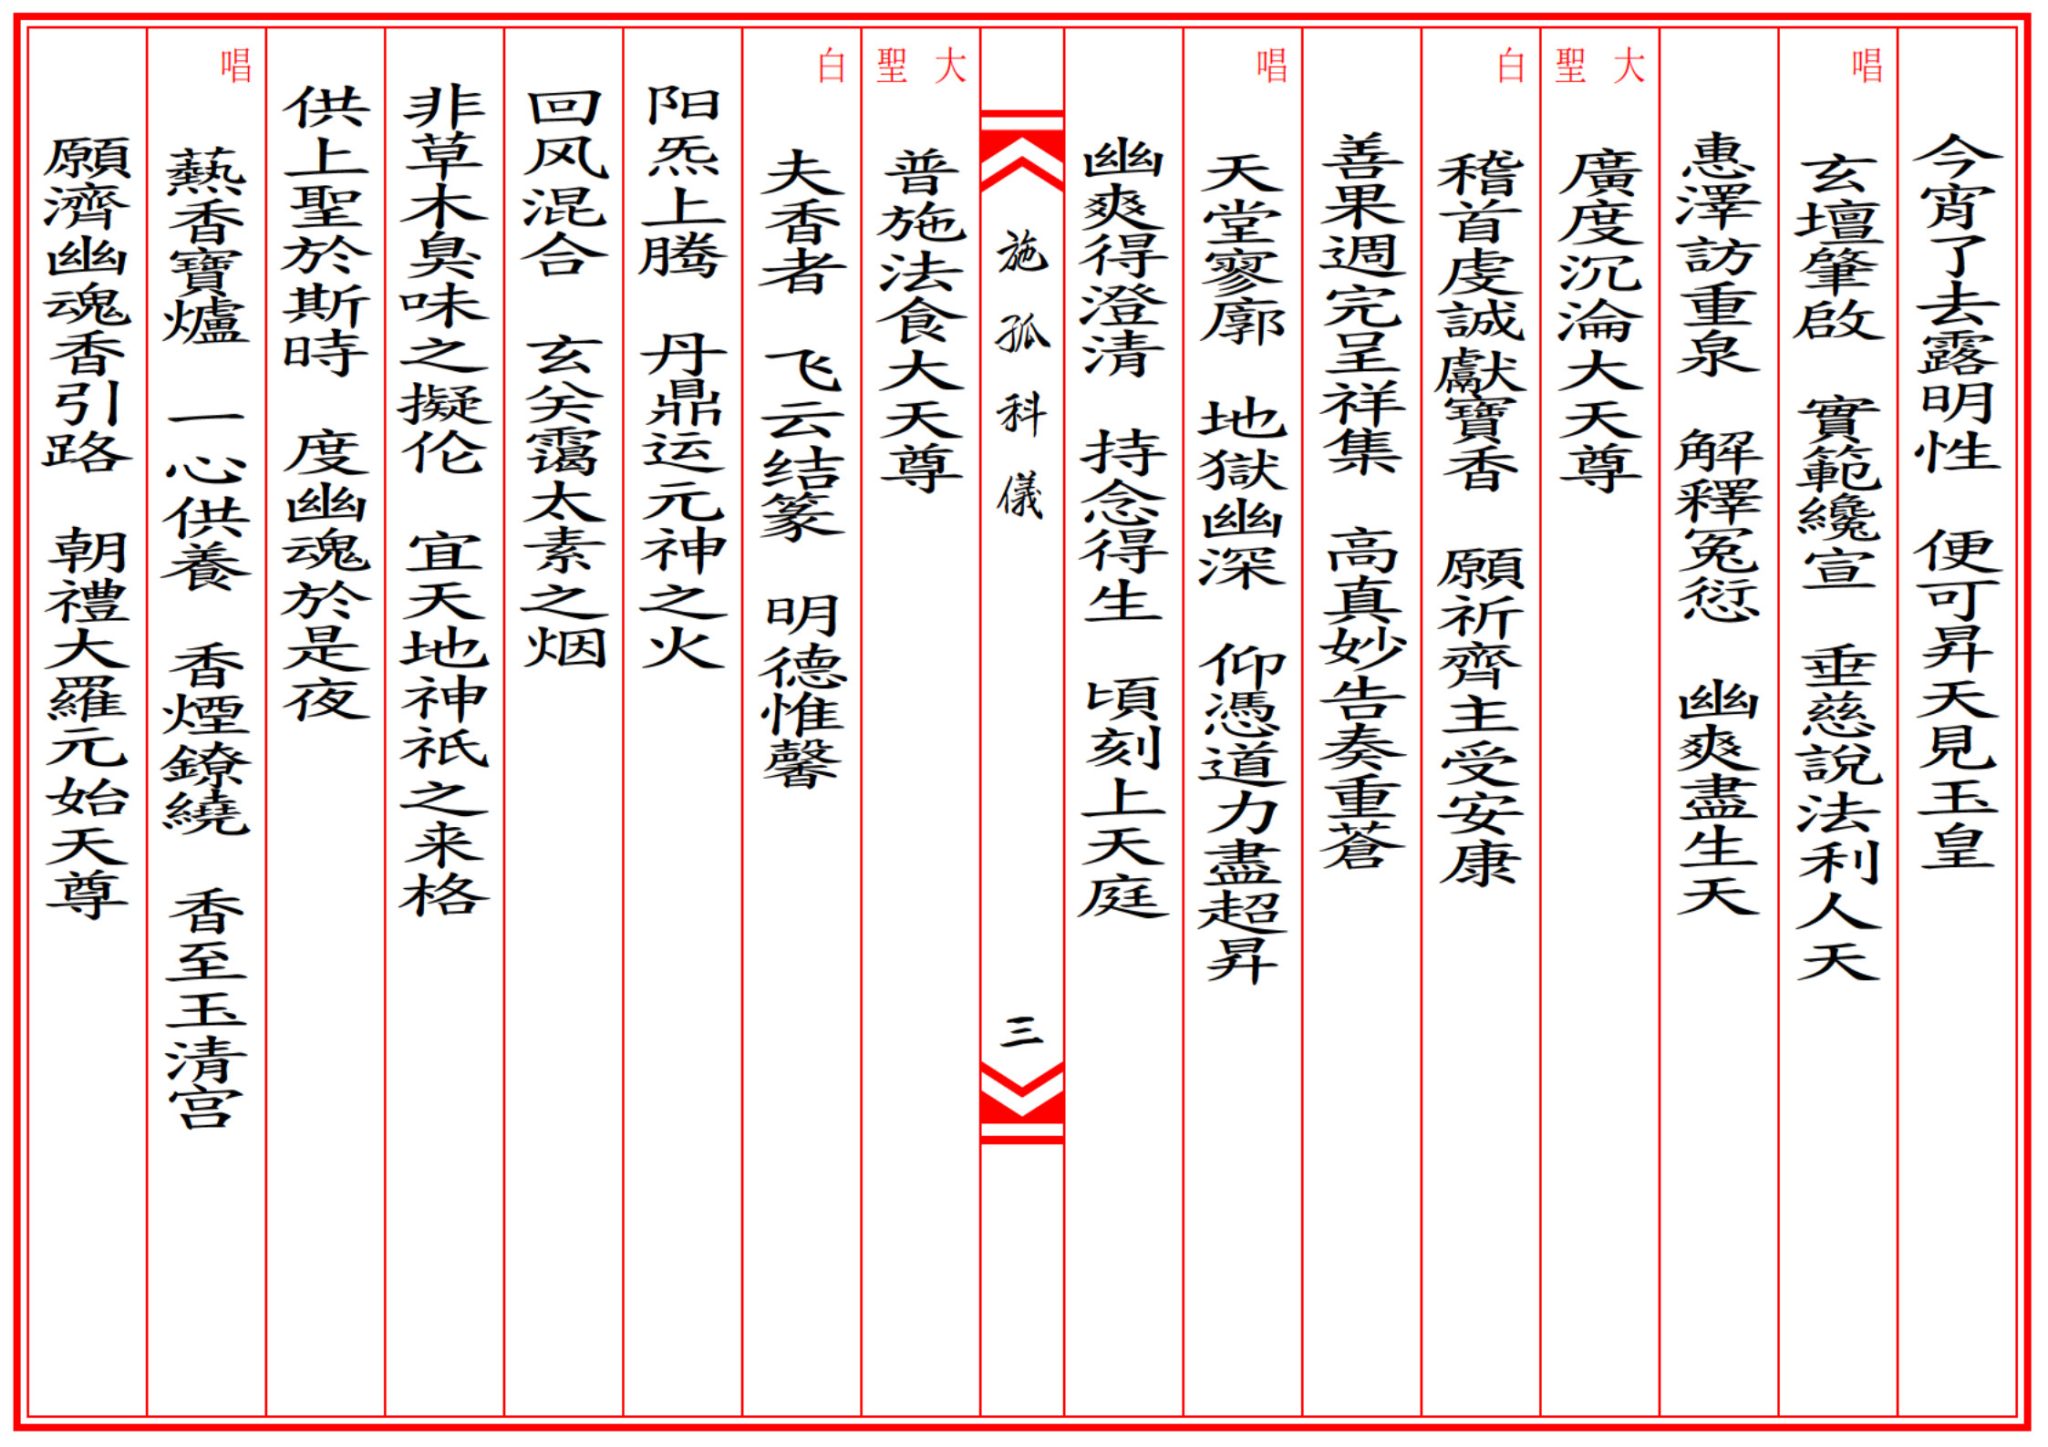 今宵了去露明性　便可昇天見玉皇
唱　玄壇肇啟　實範纔宣　垂慈說法利人天
惠澤訪重泉　解釋冤愆　幽爽盡生天
大聖　廣度沉淪大天尊
白　稽首虔誠獻寶香　願祈齊主受安康
善果週完呈祥集　高真妙告奏重蒼
唱　天堂寥廓　地獄幽深　仰憑道力盡超昇
幽爽得澄清　持念得生　頃刻上天庭
施孤科儀　三
大聖　普施法食大天尊
白　夫香者　飞云结篆　明德惟馨
阳炁上腾　丹鼎运元神之火
回风混合　玄关霭太素之烟
非草木臭味之擬伦　宜天地神祇之来格
供上聖於斯時　度幽魂於是夜
唱　爇香寶爐　一心供養　香煙鐐繞　香至玉清宫
願濟幽魂香引路　朝禮大羅元始天尊